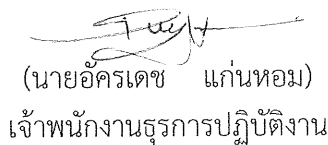 (นายอัครเดช แก่นหอม)
เจ้าพนักงานธุรการปฏิบัติงาน